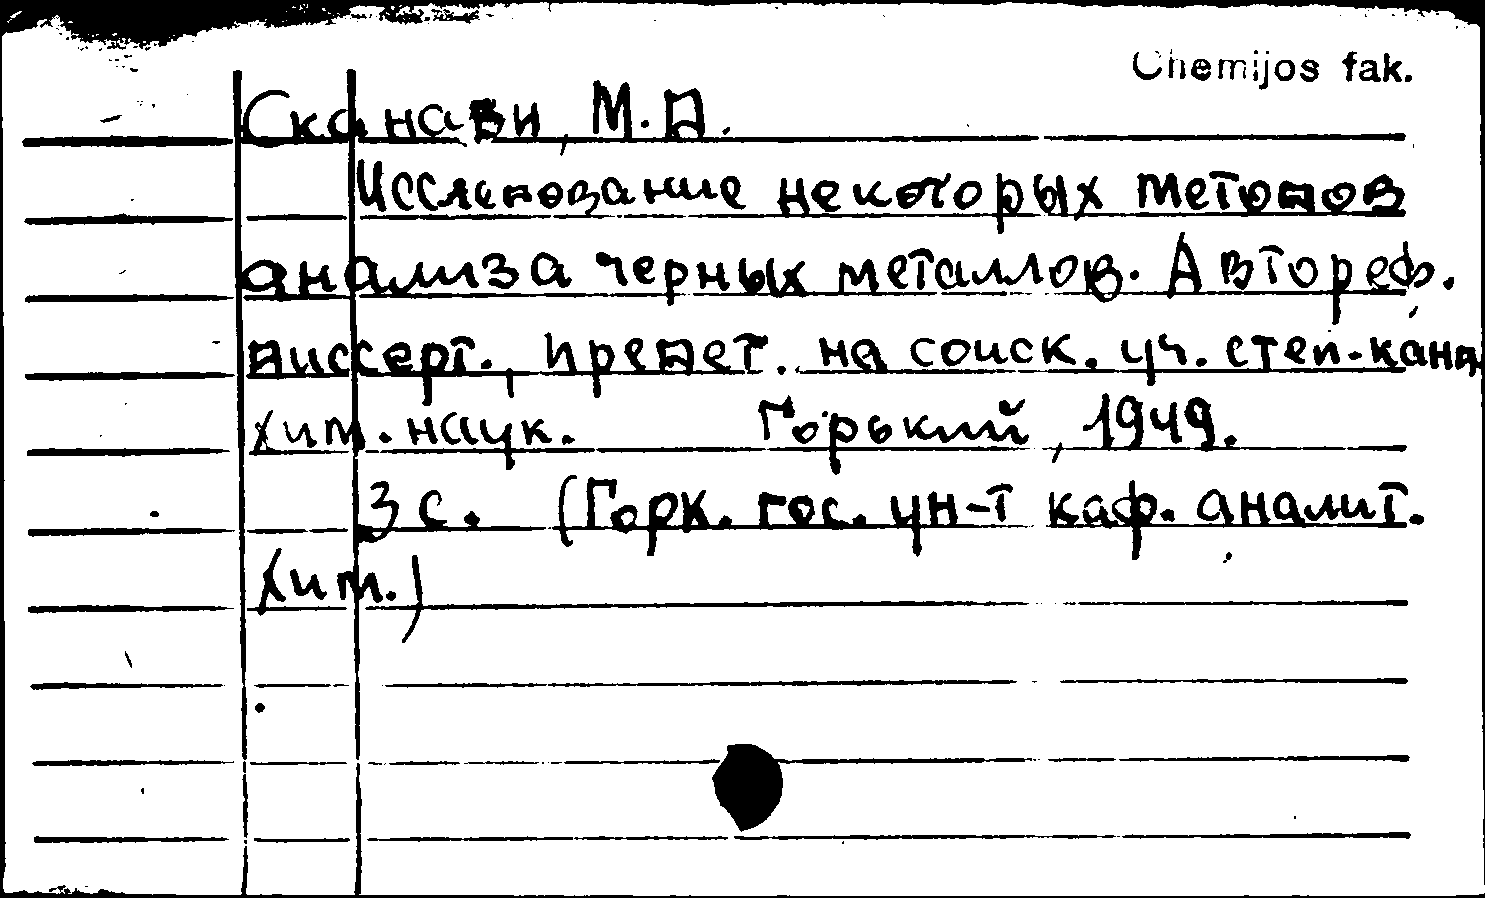 Chemijos fak.
Сканави, М.Д.
Исследование некоторых методов
анализа черных металлов. Автореф.
диссерт., предст. на соиск. уч. степ. канд.
хим. наук. Горький, 1949.
3 с. (Горк. гос. ун-т каф. аналит.
хим.)